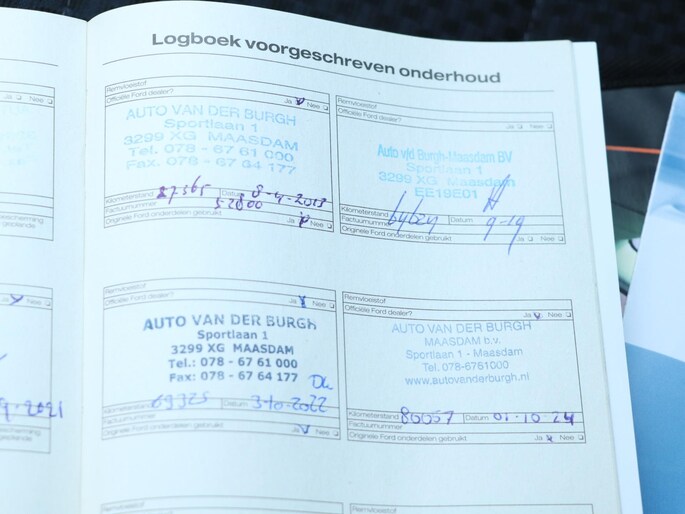 Logboek voorgeschreven onderhoud
Remvloeistof
Officiële Ford dealer? Ja Nee
AUTO VAN DER BURGH
Sportlaan 1
3299 XG MAASDAM
Tel. 078 - 67 61 000
Fax. 078 - 67 64 177
Kilometerstand Datum 8-4-2013
Factuurnummer 52800
Originele Ford onderdelen gebruikt Ja Nee
Remvloeistof
Officiële Ford dealer? Ja Nee
Auto v/d Burgh-Maasdam BV
Sportlaan 1
3299 XG Maasdam
EE19E01
Kilometerstand Datum 9-19
Factuurnummer
Originele Ford onderdelen gebruikt Ja Nee
Remvloeistof
Officiële Ford dealer? Ja Nee
AUTO VAN DER BURGH
Sportlaan 1
3299 XG MAASDAM
Tel.: 078 - 67 61 000
Fax: 078 - 67 64 177
Kilometerstand 69325 Datum 3-10-2022
Factuurnummer
Originele Ford onderdelen gebruikt Ja Nee
Remvloeistof
Officiële Ford dealer? Ja Nee
AUTO VAN DER BURGH
MAASDAM b.v.
Sportlaan 1 - Maasdam
Tel.078-6761000
www.autovanderburgh.nl
Kilometerstand 80057 Datum 01-10-24
Factuurnummer
Originele Ford onderdelen gebruikt Ja Nee
Ja Nee
Ja Nee
Nee
2021